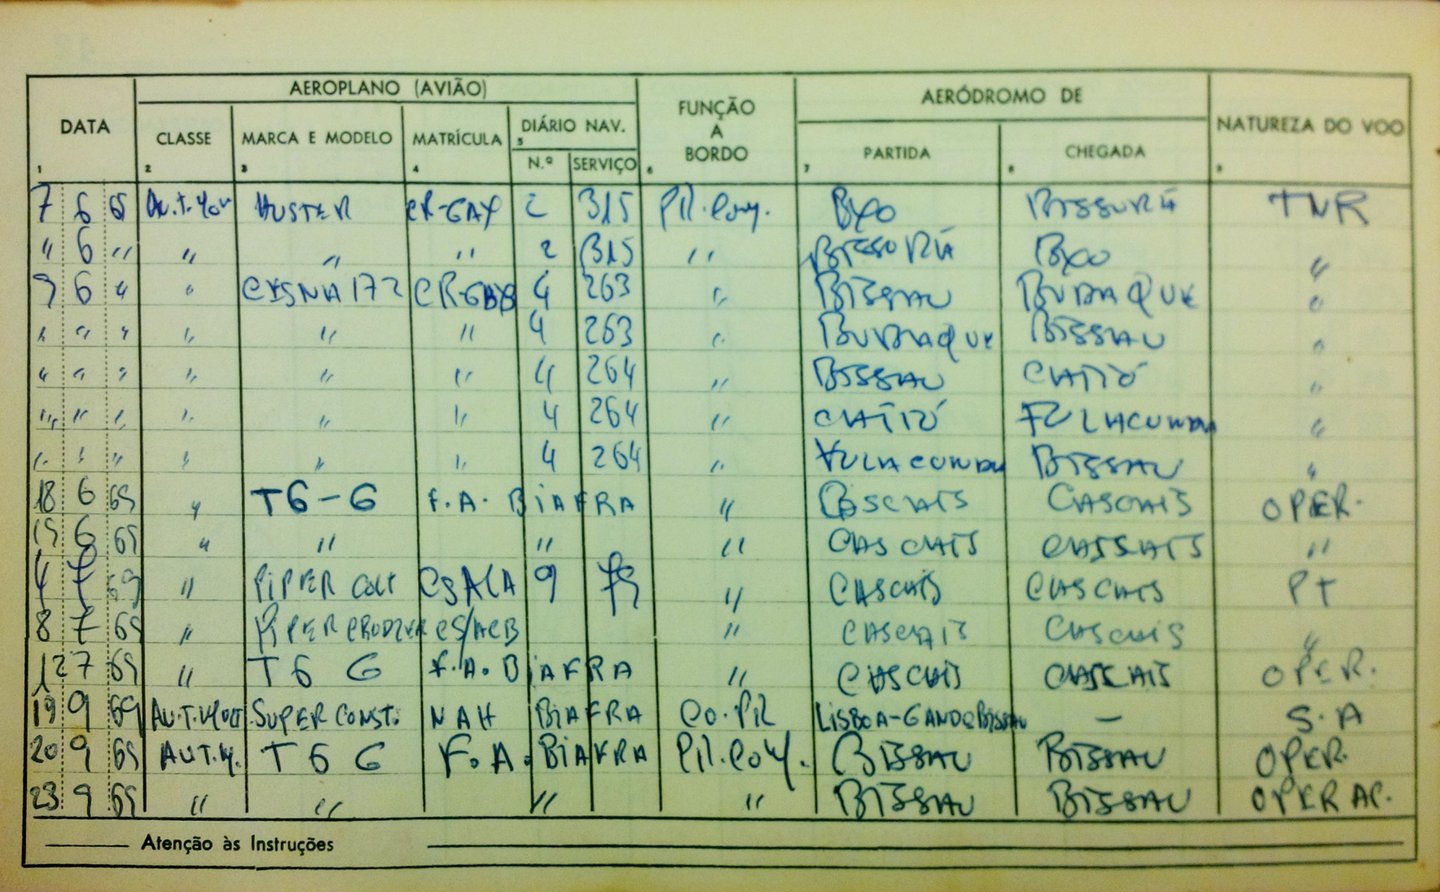 AEROPLANO (AVIÃO) AERÓDROMO DE
DATA FUNÇÃO A BORDO NATUREZA DO VOO
CLASSE MARCA E MODELO MATRÍCULA DIÁRIO NAV. PARTIDA CHEGADA
N.º SERVIÇO
1 2 3 4 5 6 7 8 9
7 6 69 AUSTER CR-GAY 2 315 BXO BISSORÃ
" 6 " " " " 2 315 " BISSORÃ BXO "
9 6 " " CESNA 172 4 263 " BISSAU BUBAQUE "
" " " " " " 4 263 " BUBAQUE BISSAU "
" " " " " " 4 264 " BISSAU CATIÓ "
" " " " " " 4 264 " CATIÓ FULACUNDA "
" " " " " " 4 264 " FULACUNDA BISSAU "
18 6 69 " T6-G F.A. BIAFRA " CASCAIS CASCAIS OPER.
19 6 69 " " " " CASCAIS CASCAIS "
4 7 69 " PIPER COLT 9 " CASCAIS CASCAIS PT
8 7 69 " PIPER CS/ACB " CASCAIS CASCAIS "
12 7 69 " T6 G F.A. BIAFRA " CASCAIS CASCAIS OPER.
19 9 69 SUPER CONST. NAH BIAFRA CO.PIL LISBOA- BISSAU — S.A
20 9 69 AUT.M. T6 G F.A. BIAFRA BISSAU BISSAU OPER.
23 9 69 " " " " BISSAU BISSAU OPERAC.
Atenção às Instruções